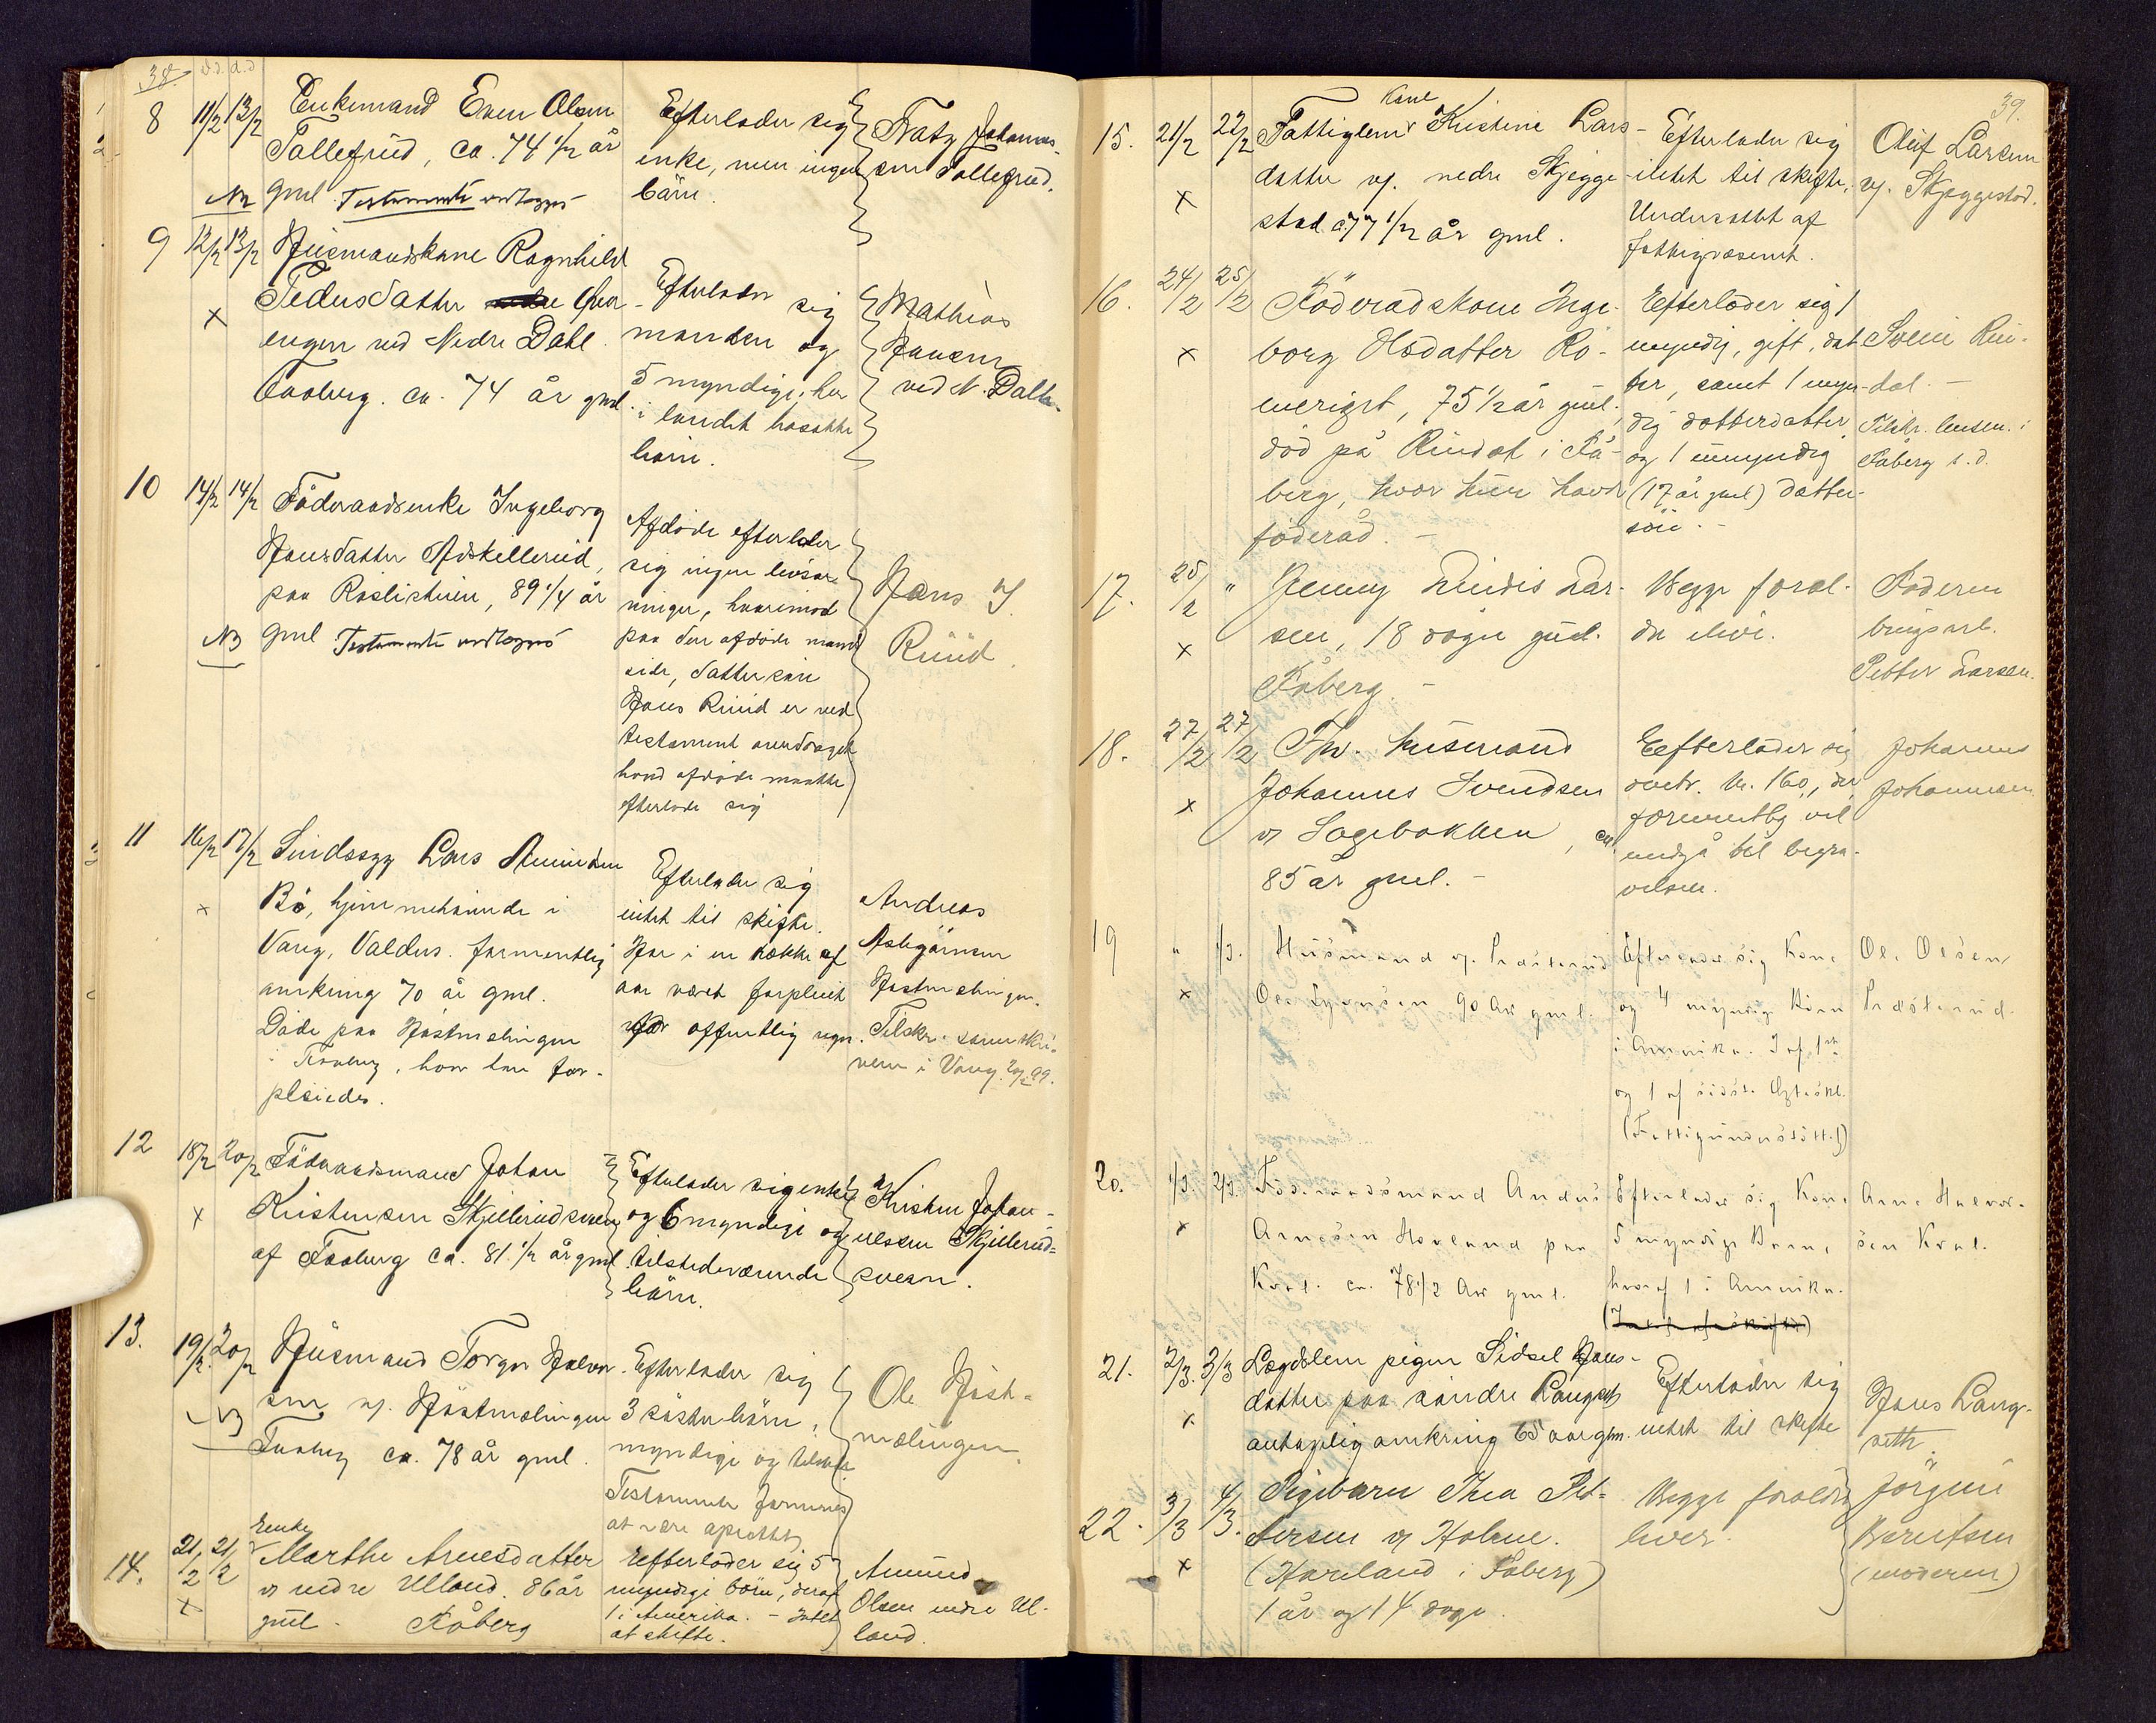 38.
8 11/2 13/2 Enkemand Even Olsen
Tollefrud, ca. 74 1/2 år
gml. Testamente vedlægges
NB
Efterlader sig
enke, men ingen
børn.
Johannes-
sen Tollefrud.
9 12/2 13/2 Husmandskone Ragnhild
Pedersdatter
engen ved Nedre Dahl
Faaberg. ca. 74 år gml.
x
Efterlader sig
manden og
5 myndige, her
i landet bosatte
børn.
Mathias
Hansen
ved N. Dahl
10 14/2 14/2 Føderaadsenke Ingeborg
Hansdatter Adskillerud,
paa Røslistuen, 89 1/4 år
gml. Testamente vedlægges
NB
Afdøde efterlader
sig ingen livsar-
vinger, hvorimod
paa den afdøde mands
side, dattersøn
Hans Ruud er ved
testament overdraget
hvad afdøde maatte
efterlade sig
Hans J.
Ruud.
11 16/2 17/2 Sindssyg Lars Amundsen
Bø, hjemmehørende i
Vang, Valders. formentlig
omkring 70 år gml.
Døde paa Høstmælingen
i Faaberg, hvor han for-
pleiedes.
x
Efterlader sig
intet til skifte.
Har i en række af
aar været forpleiet
for offentlig regn.
Andreas
Asbjørnsen
Høstmælingen.
Tilskr. sorenskri-
veren i Vang. 20/2 99.
12 18/2 20/2 Føderaadsmand Johan
Kristensen Skjellerudsveen
af Faaberg ca. 81 1/2 år gml.
x
Efterlader sig enke
og 6 myndige og
tilstedeværende
børn.
Kristen Johan-
nessen Skjellerud-
sveen.
13. 19/2 20/2 Husmand Torger Halvor-
sen v. Høstmælingen
Faaberg ca. 78 år gml.
NB
Efterlader sig
3 søsterbørn,
myndige og
Testamente formenes
at være oprettet
Ole Høst-
mælingen
14. 21/2 21/2 Enke
Marthe Arnesdatter
v nedre Ulland. 86 år
gml. Fåberg
x
Efterlader sig 5
myndige børn, deraf
1 i Amerika. - Intet
at skifte.
Amund
Olsen nedre Ul-
land.
39.
15. 21/2 22/2 Fattiglem Kone Kristine Lars-
datter v. nedre Skjegge-
stad ca 77 1/2 år gml.
x
Efterlader sig
intet til skifte.
Understøttet af
fattigvæsenet.
Oluf Larsen
v. Skjeggestad.
16. 24/2 25/2 Føderådskone Inge-
borg Olsdatter Rø-
neriget, 75 1/2 år gml.,
død på Rindal i Få-
berg, hvor hun havde
føderåd. -
x
Efterlader sig 1
myndig, gift, dat-
ter, samt 1 myn-
dig datterdatter
og 1 umyndig
(17 år gml) datter-
søn. -
Svein Rin-
dal. -
Tilskr. lensm. i
Fåberg s. d.
17. 25/2 " Jenny Lindis Lar-
sen, 18 dage gml.
Fåberg. -
x
Begge foræl-
dre ilive.
Faderen
Petter Larsen.
18. 27/2 27/2 Fhv. husmand
Johannes Svendsen
v Sagebakken, ca
85 år gml. -
x
Efterlader sig
kr. 160, der
formentlig vil
medgå til begra-
velsen.
Johannes
Johannesen
19 " 1/3. Husmand v. Præsterud
Ole Syversen 90 Aar gml.
x
Efterlader sig Kone
og 4 myndige Børn
i Amerika. 3 af 1ste
og 1 af sidste Ægteskl.
(Fattigunderstøttet)
Ole Olsen
Præsterud.
20. 1/3. 2/3. Føderaadsmand Anders
Arnesen Hovland paa
Kval. ca. 78 1/2 Aar gml.
x
Efterlader sig Kone
5 myndige Børn,
hvoraf 1 i Amerika.
Arne Halvor-
sen Kval.
21. 2/3. 3/3 Lægdslem pigen Sidsel Hans-
datter paa søndre Langseth
antagelig omkring 65 aar gml.
x
Efterlader sig
intet til skifte
Hans Lang-
seth.
22. 3/3 4/3. Pigebarn Thea Pet-
tersen v Holme.
(Hovland i Faberg)
1 år og 14 dage.
x
Begge forældre
lever.
Jørgine
Berntsen
(moderen)